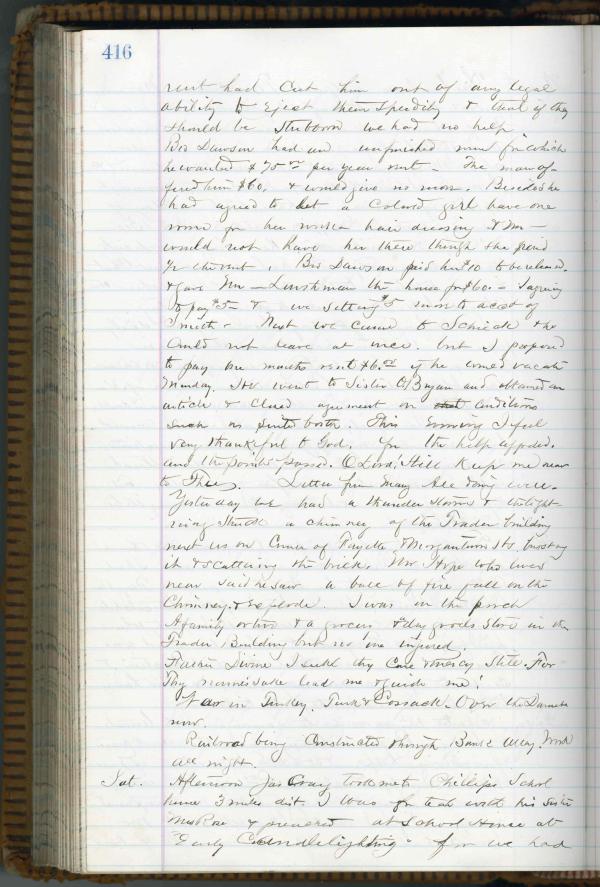 416
rent had cut him out of any legal
ability to Eject them speedily & that if they
should be stubborn we had no help
Bro Dawson had an unfinished room for which
he wanted $75.00 per year rent - The man of-
fered him $60. & would give no more. Besides he
had agreed to let a Colored girl have one
room for her work hair dressing & Mr -
would not have her there though she paid
the rent. Bro Dawson paid her $10 to be released.
& gave Mr - Linshman the house for $60 - I agreeing
to pay $5 - & we setting $5 more to acct of
Smith - Next we came to Schick & he
Could not leave at once. but I proposed
to pay one months rent $6.00 if he would vacate
Monday. He went to Sister O'Bryan and obtained an
article & Closed agreement on that Conditions
such as suited both. This Evening I feel
very thankful to God. for the help afforded.
and the points passed. O Lord! Still Keep me near
to Thee. Letter from Mary All doing well.
Yesterday we had a thunder storm & the light-
ning struck a chimney of the Trader building
next us on Corner of Fayette & Morgantown Sts bursting
it & scattering the brick. Mr. Hope who lives
near said he saw a ball of fire fall on the
Chimney. & explode. I was in the porch
A family or two & a grocery & dry goods store in the
Trader Building but no one injured.
Father Divine I seek thy Care & mercy still. For
Thy names sake lead me & guide me!
War in Turkey. Turk & Cossack. Over the Danube
now.
Railroad being Constructed through Bank Alley. Work
all night.
Sat. Afternoon Jas Gray took me to Phillips School
house 3 miles dist. I was for tea with his Sister
Mrs Rose & preached at School House at
"Early Candlelighting" for we had